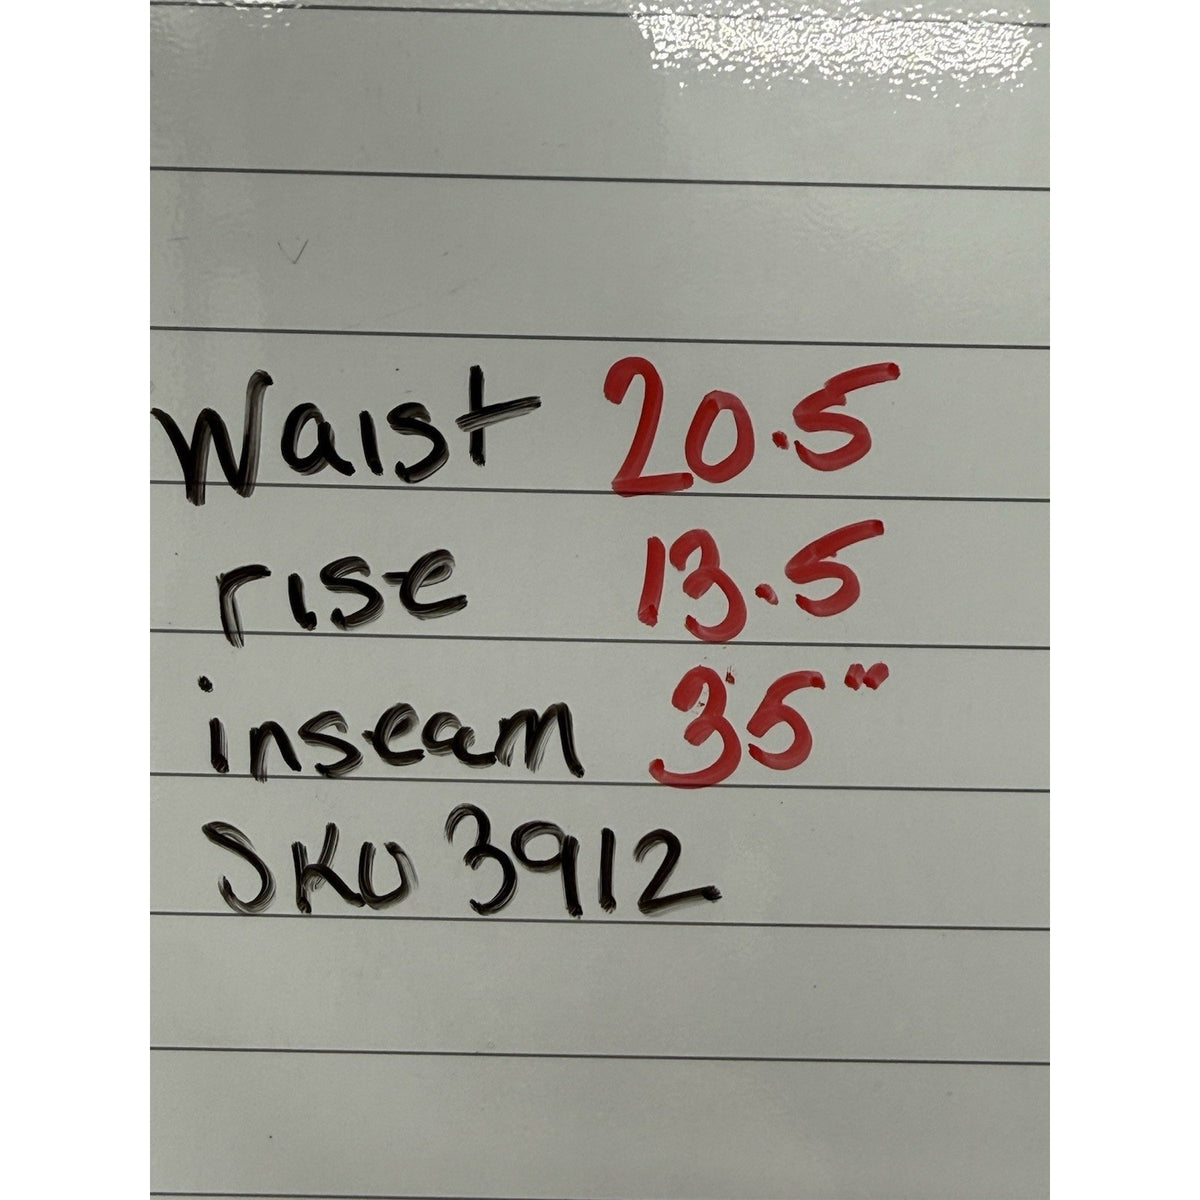 Waist 20.5
rise 13.5
inseam 35"
SKU 3912